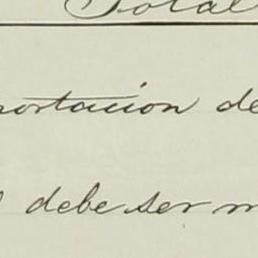 Total
portacion de
debe ser m